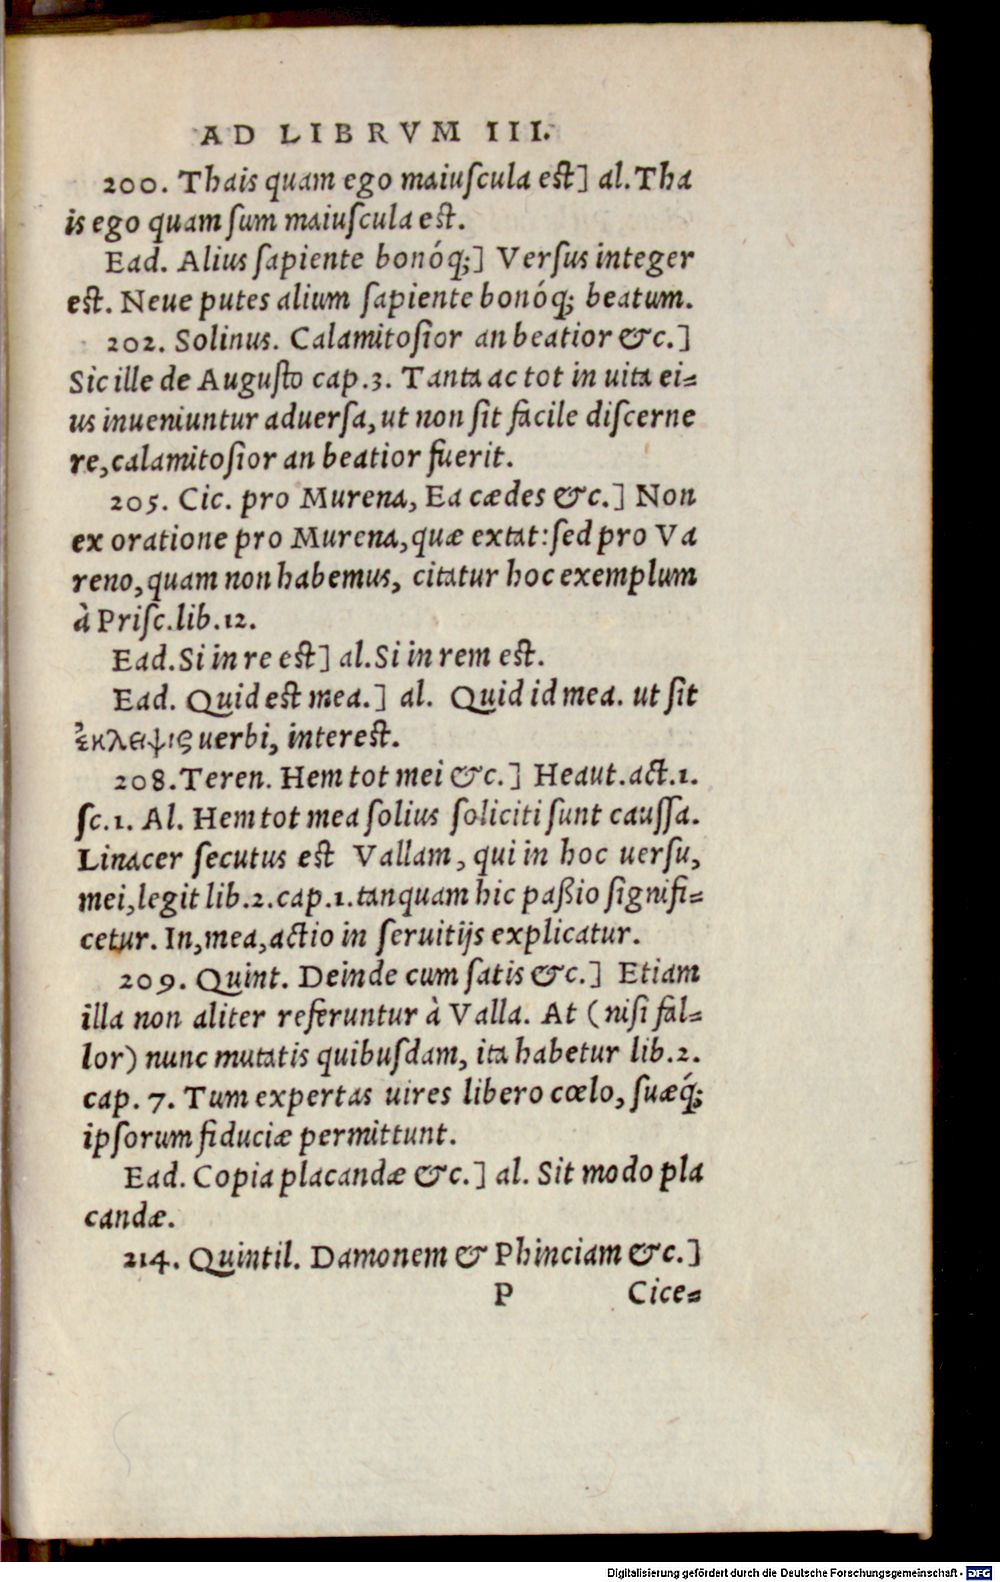 AD LIBRVM III.
200. Thais quam ego maiuſcula eſt] al. Tha
is ego quam ſum maiuſcula eſt.
Ead. Alius ſapiente bonóq;] Verſus integer
eſt. Neue putes alium ſapiente bonóq; beatum.
202. Solinus. Calamitoſior an beatior &c.]
Sic ille de Auguſto cap.3. Tanta ac tot in uita ei=
us inueniuntur aduerſa, ut non ſit facile diſcerne
re, calamitoſior an beatior fuerit.
205. Cic. pro Murena, Ea cædes &c.] Non
ex oratione pro Murena, quæ extat: ſed pro Va
reno, quam non habemus, citatur hoc exemplum
à Priſc. lib.12.
Ead. Si in re eſt] al. Si in rem eſt.
Ead. Quid est mea.] al. Quid id mea. ut ſit
ἔκλειψις uerbi, intereſt.
208. Teren. Hem tot mei &c.] Heaut. act.1.
ſc.1. Al. Hem tot mea ſolius ſoliciti ſunt cauſſa.
Linacer ſecutus eſt Vallam, qui in hoc uerſu,
mei, legit lib.2. cap.1. tanquam hic paßio ſignifi=
cetur. In, mea, actio in ſeruitijs explicatur.
209. Quint. Deinde cum ſatis &c.] Etiam
illa non aliter referuntur à Valla. At (niſi fal=
lor) nunc mutatis quibuſdam, ita habetur lib.2.
cap. 7. Tum expertas uires libero cœlo, ſuæq́;
ipſorum fiduciæ permittunt.
Ead. Copia placandæ &c.] al. Sit modo pla
candæ.
214. Quintil. Damonem & Phinciam &c.]
P Cice=
Digitalisierung gefördert durch die Deutsche Forschungsgemeinschaft - DFG